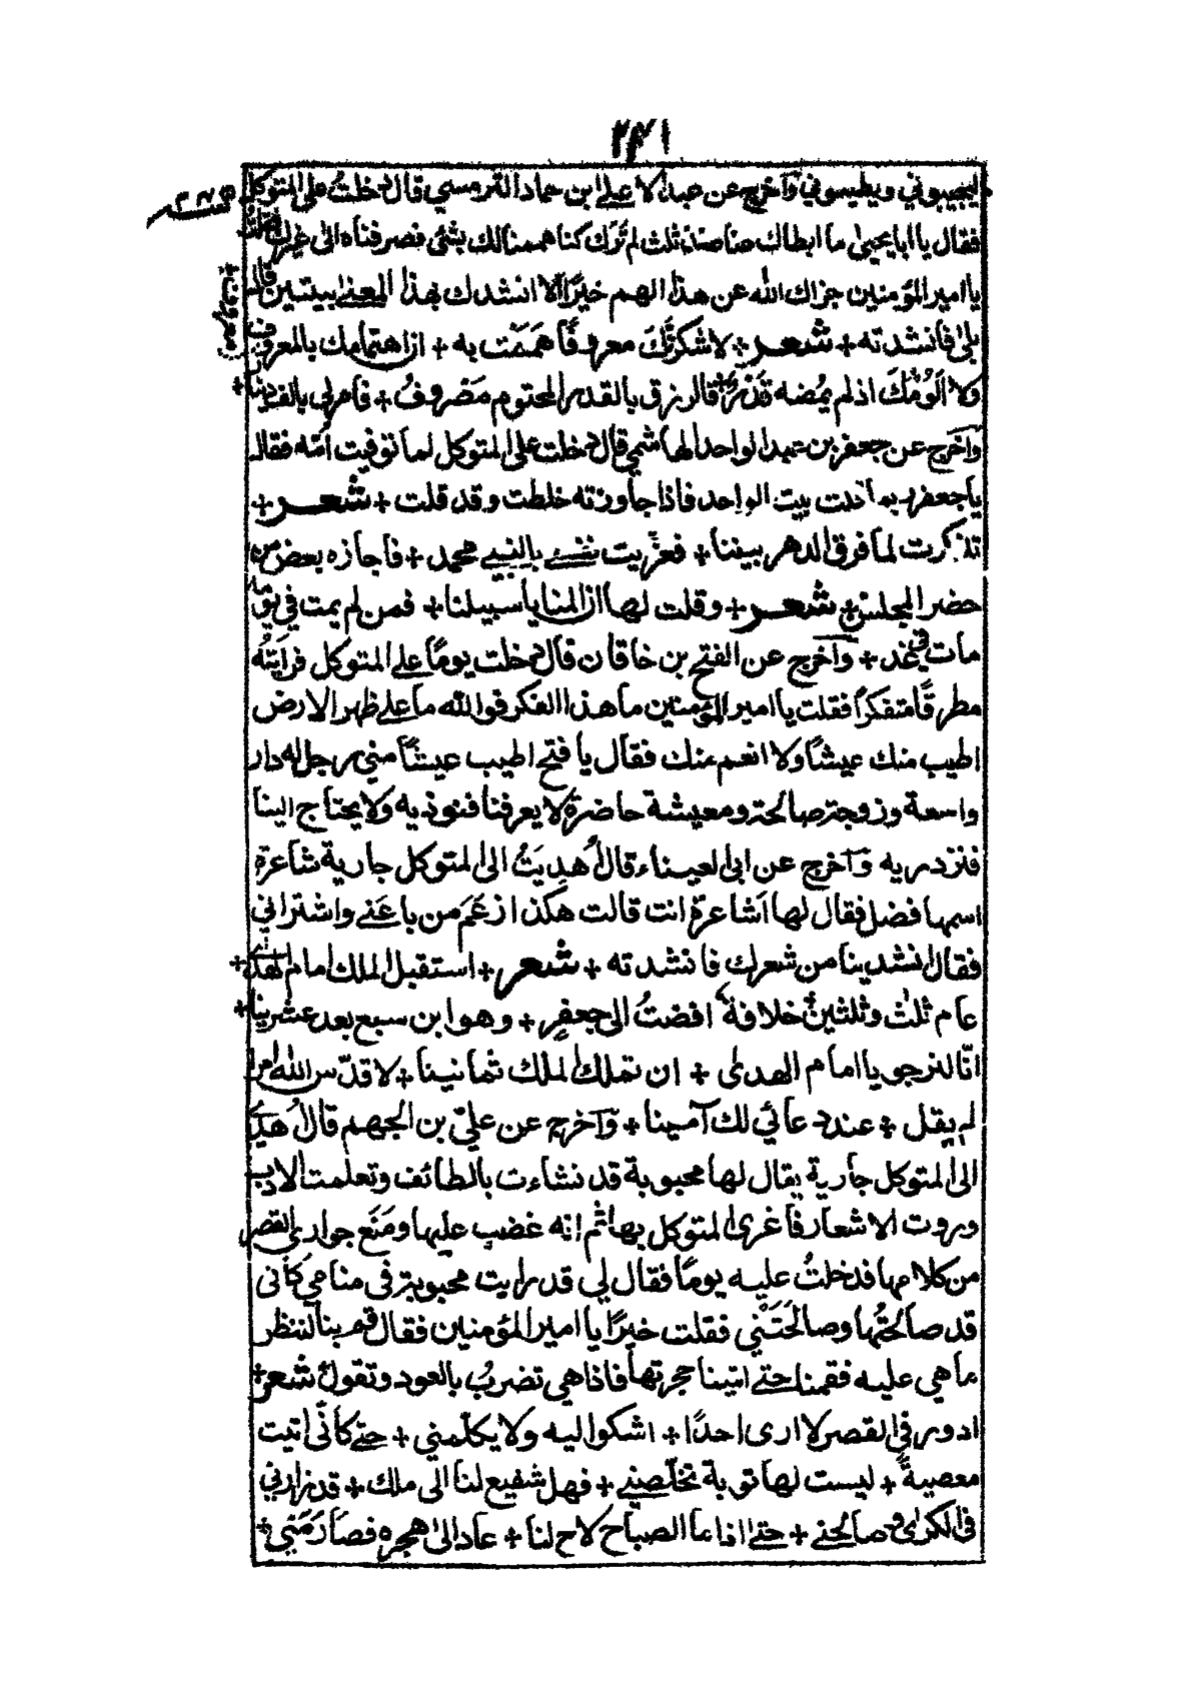 ٢٤١
ليجيبوني ويطيعوني وآخرج عن عبد الاعلى ابن حماد النرسي قال دخلتُ على المتوكل
فقال يا ابا يحيى ما ابطاك عنا منذ ثلث لم نَرَك كنا هممنا لك بشئ فصرفناه الى غيرك فقلتُ
يا امير المؤمنين جزاك الله عن هذا الهم خيرًا الا انشدك بهذا المعنى بيتين قال
بلى فانشدته + شعر + لاشكرَنَّكَ معروفًا هَمَمْتَ به + ان اهتمامك بالمعروف
معروف
ولا اَلُومُكَ اذ لم يُمضه قَدَرٌ + فالرزق بالقدر المحتوم مَصْروفُ + فامر لي بالف دينار +
وآخرج عن جعفر بن عبد الواحد الهاشمي قال دخلت على المتوكل لما توفيت اُمّه فقال
يا جعفر ربما قلت بيت الواحد فاذا جاوزته خلطت وقد قلت + شعر +
تذكرت لما فرق الدهر بيننا + فعزّيت نفسي بالنبي محمد + فاجازه بعض من
حضر المجلس + شعر + وقلت لها ان المنايا سبيلنا + فمن لم يمت في يومه
مات في غد + وآخرج عن الفتح بن خاقان قال دخلت يومًا على المتوكل فرايتُه
مطرقًا متفكرًا فقلت يا امير المؤمنين ما هذا الفكر فوالله ما على ظهر الارض
اطيب منك عيشًا ولا انعم منك فقال يا فتح اطيب عيشًا مني رجل له دار
واسعة وزوجة صالحة ومعيشة حاضرة لا يعرفنا فنوذيه ولا يحتاج الينا
فنزدريه وآخرج عن ابي العيناء قال اُهدِيَتْ الى المتوكل جارية شاعرة
اسمها فضل فقال لها اَشاعرة انت قالت هكذا زعَمَ من باعَني واشتراني
فقال انشدينا من شعرك فانشدته + شعر + استقبل الملك امام الهدى +
عام ثلث وثلثين + خلافة افضتُ الى جعفرٍ + وهو ابن سبع بعد عشرينا +
انّا لنرجو يا امام الهدى + ان تملك الملك ثمانينا + لا قدّس الله امرأ
لم يقل + عند دعائي لك آمينا + وآخرج عن علي بن الجهم قال اُهدِيَ
الى المتوكل جارية يقال لها محبوبة قد نشاءت بالطائف وتعلمت الادب
وروت الاشعار فاغرى المتوكل بها ثم انه غضب عليها ومَنَع جواري القصر
من كلامها فدخلتُ عليه يومًا فقال لي قد رايت محبوبة في منامي كاَني
قد صالحتُها وصالحَتَني فقلت خيرًا يا امير المؤمنين فقال قم بنا لننظر
ما هي عليه فقمنا حتى اتينا حجرتها فاذا هي تضربُ بالعود وتقول شعر +
ادور في القصر لا ارى احدًا + اشكوا ليه ولا يكلّمني + حتى كاَنّى اتيت
معصيةً + ليست لها توبة تخلّصني + فهل شفيع لنا الى ملك + قد زارني
في الكرى وصالحني + حتى اذا ما الصباح لاح لنا + عاد الى هجره فصارَمَني +